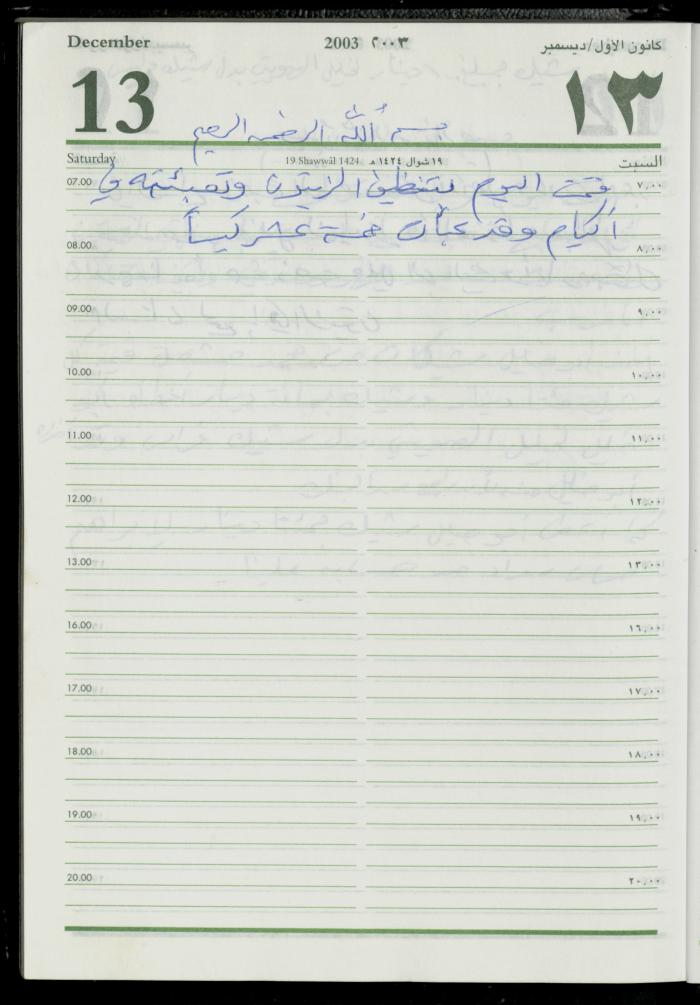 December 2003 ٢٠٠٣ كانون الأول/ديسمبر
13 ١٣
بسم الله الرحمن الرحيم
Saturday 19 Shawwāl 1424 ١٩ شوال ١٤٢٤ هـ السبت
07.00 قمت اليوم بتنظيف الزيتون وتعبئته في ٧,٠٠
أكياس وقد عبأت خمسة عشر كيساً
08.00 ٨,٠٠
09.00 ٩,٠٠
10.00 ١٠,٠٠
11.00 ١١,٠٠
12.00 ١٢,٠٠
13.00 ١٣,٠٠
16.00 ١٦,٠٠
17.00 ١٧,٠٠
18.00 ١٨,٠٠
19.00 ١٩,٠٠
20.00 ٢٠,٠٠